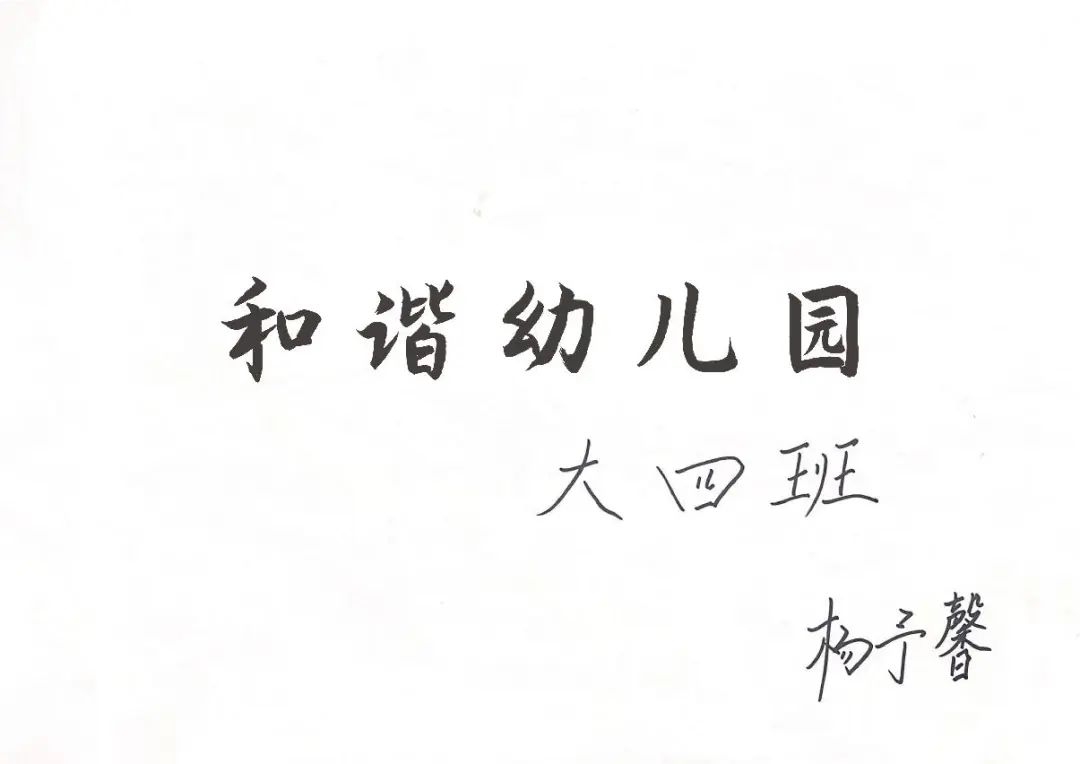 和谐幼儿园
大四班
杨予馨